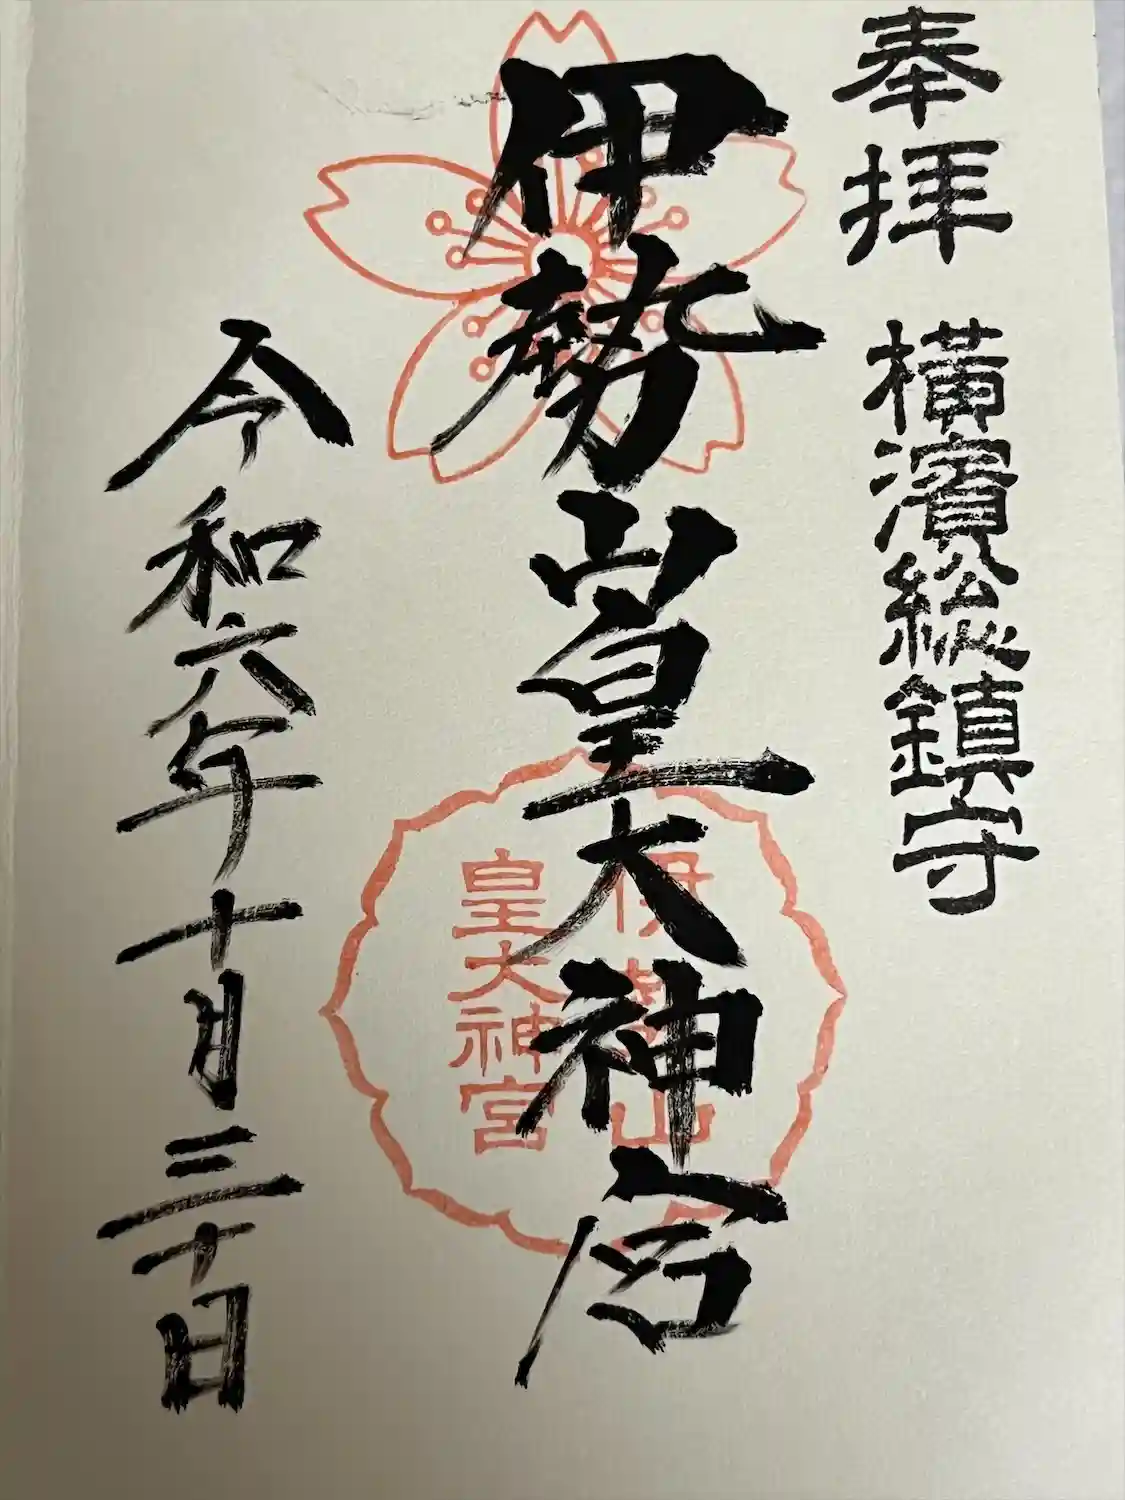 奉拝 横濱総鎮守
伊勢山皇大神宮
伊勢山
皇大神宮
令和六年十月三十日